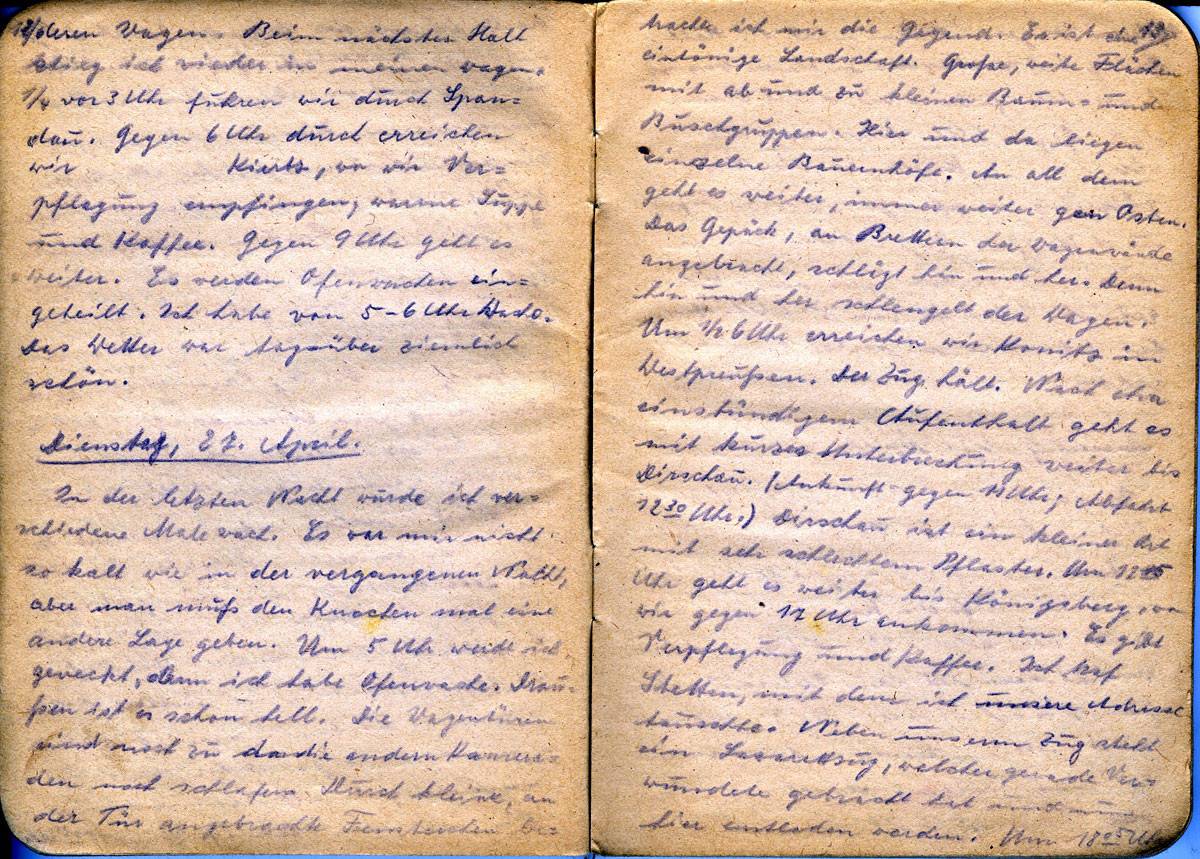 12/ deren Wagen. Beim nächsten Halt
stieg ich wieder in meinen Wagen.
1/4 vor 3 Uhr fuhren wir durch Span=
dau. Gegen 6 Uhr durch erreichen
wir Kietz, wo wir Ver=
pflegung empfingen, warme Suppe
und Kaffee. Gegen 9 Uhr geht es
weiter. Es werden Ofenwachen ein=
geteilt. Ich habe von 5-6 Uhr Wache.
Das Wetter war tagsüber ziemlich
schön.
Dienstag, 27. April.
In der letzten Nacht wurde ich ver=
schiedene Male wach. Es war mir nicht
so kalt wie in der vergangenen Nacht,
aber man muß den Knochen mal eine
andere Lage geben. Um 5 Uhr werde ich
geweckt, denn ich habe Ofenwache. Drau=
ßen ist es schon hell. Die Wagentüren
sind noch zu da die andern Kamera=
den noch schlafen. Durch kleine, an
der Tür angebrachte Fensterchen be=
13/
trachte ich mir die Gegend. Es ist eine
eintönige Landschaft. Große, weite Flächen
mit ab und zu kleinen Baum= und
Buschgruppen. Hier und da liegen
einzelne Bauernhöfe. An all dem
geht es weiter, immer weiter gen Osten.
Das Gepäck, an Brettern der Wagenwände
angebracht, schlägt hin und her. Denn
hin und her schlengelt der Wagen.
Um 1/2 6 Uhr erreichen wir Konitz in
Westpreußen. Der Zug hält. Nach etwa
einstündigem Aufenthalt geht es
mit kurzer Unterbrechung weiter bis
Dirschau. (Ankunft gegen 11 Uhr, Abfahrt
12 30 Uhr.) Dirschau ist ein kleiner Ort
mit sehr schlechtem Pflaster. Um 12
Uhr geht es weiter bis Königsberg, wo
wir gegen 17 Uhr ankommen. Es gibt
Verpflegung und Kaffee. Ich traf
Stetten, mit dem ich unsere Adresse
tauschte. Neben unserm Zug steht
ein Lazarettzug, welcher gerade Ver=
wundete gebracht hat und nun
hier entladen werden. Um 18 05 Uhr